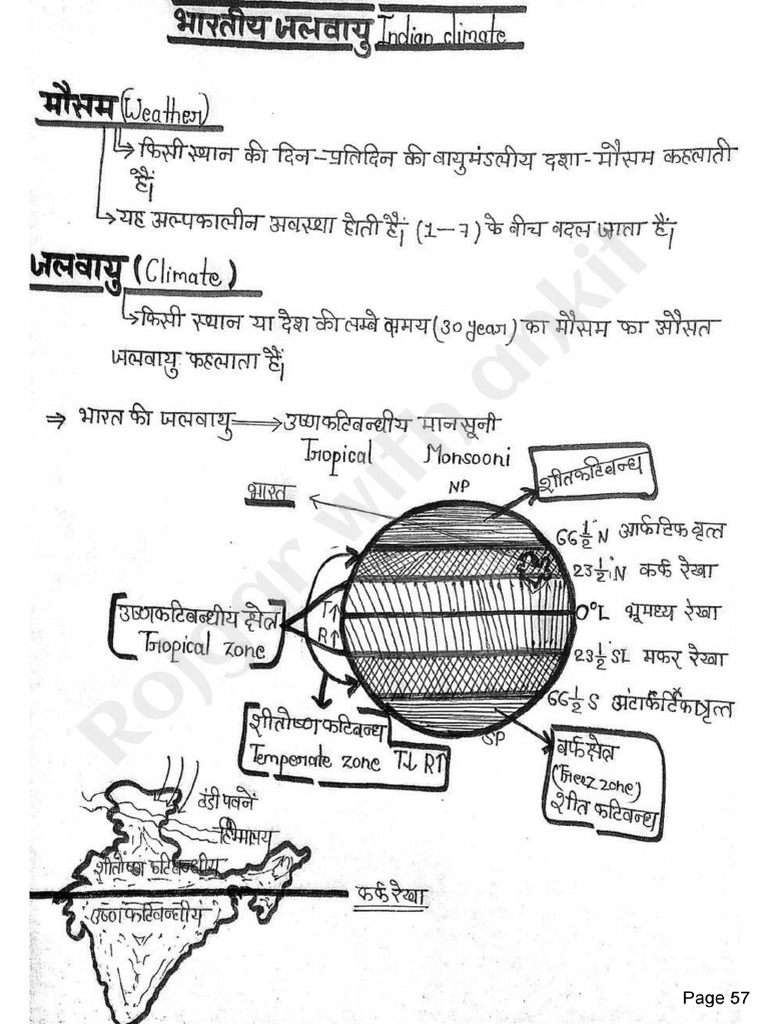 भारतीय जलवायु Indian climate
मौसम (Weather)
किसी स्थान की दिन-प्रतिदिन की वायुमंडलीय दशा-मौसम कहलाती
हैं।
यह अल्पकालीन अवस्था होती हैं। (1-7) के बीच बदल जाता हैं।
जलवायु (Climate)
किसी स्थान या देश की लम्बे समय (30 year) का मौसम का औसत
जलवायु कहलाता हैं।
⇒ भारत की जलवायु ⟹ उष्णकटिबन्धीय मानसूनी
Tropical Monsooni
शीतकटिबन्ध
NP
भारत
66 1/2° N आर्कटिक वृत्त
23 1/2° N कर्क रेखा
उष्णकटिबन्धीय क्षेत्र
Tropical zone
T↑
R↑
0°L भूमध्य रेखा
23 1/2° SL मकर रेखा
66 1/2° S अंटार्कर्टिक वृत्त
शीतोष्ण कटिबन्ध
Temperate zone T↓ R↑
SP
बर्फ क्षेत्र
(Freez zone)
शीत कटिबन्ध
ठंडी पवनें
हिमालय
शीतोष्ण कटिबन्धीय
कर्क रेखा
उष्णकटिबन्धीय
Rojgar with ankit
Page 57